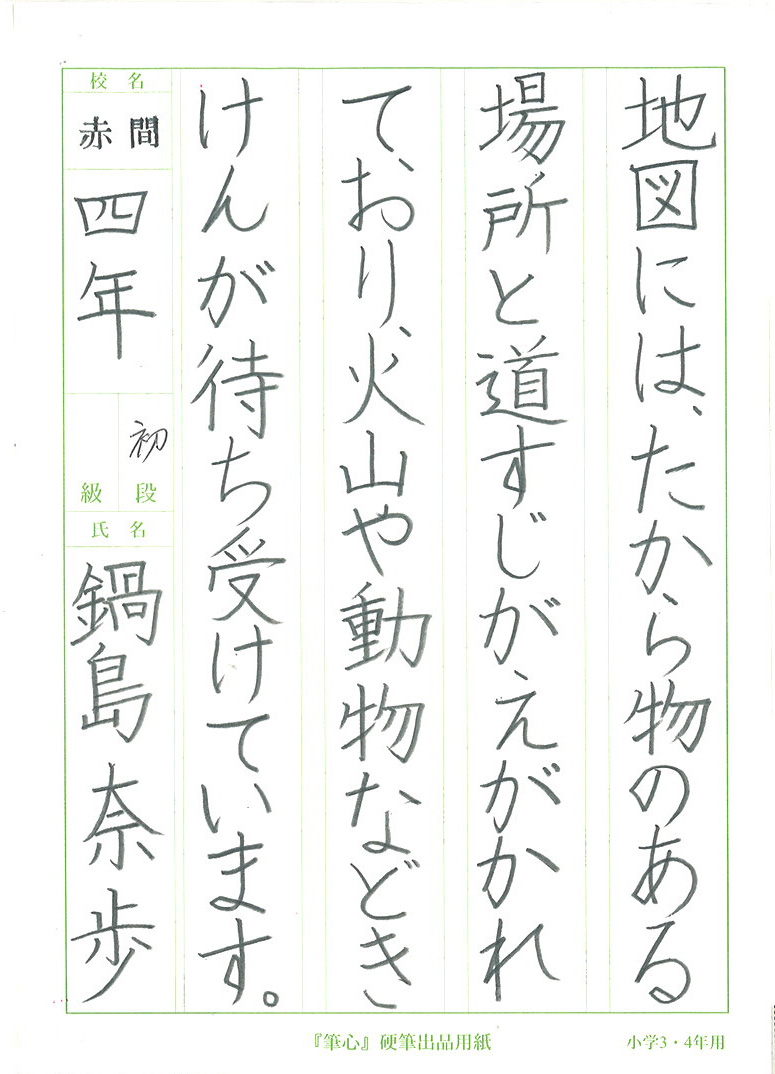 地図には、たから物のある
場所と道すじがえがかれ
て、おり、火山や動物などき
けんが待ち受けています。
校名
赤間
四年
初
段
級
氏名
鍋島奈歩
『筆心』硬筆出品用紙
小学3・4年用